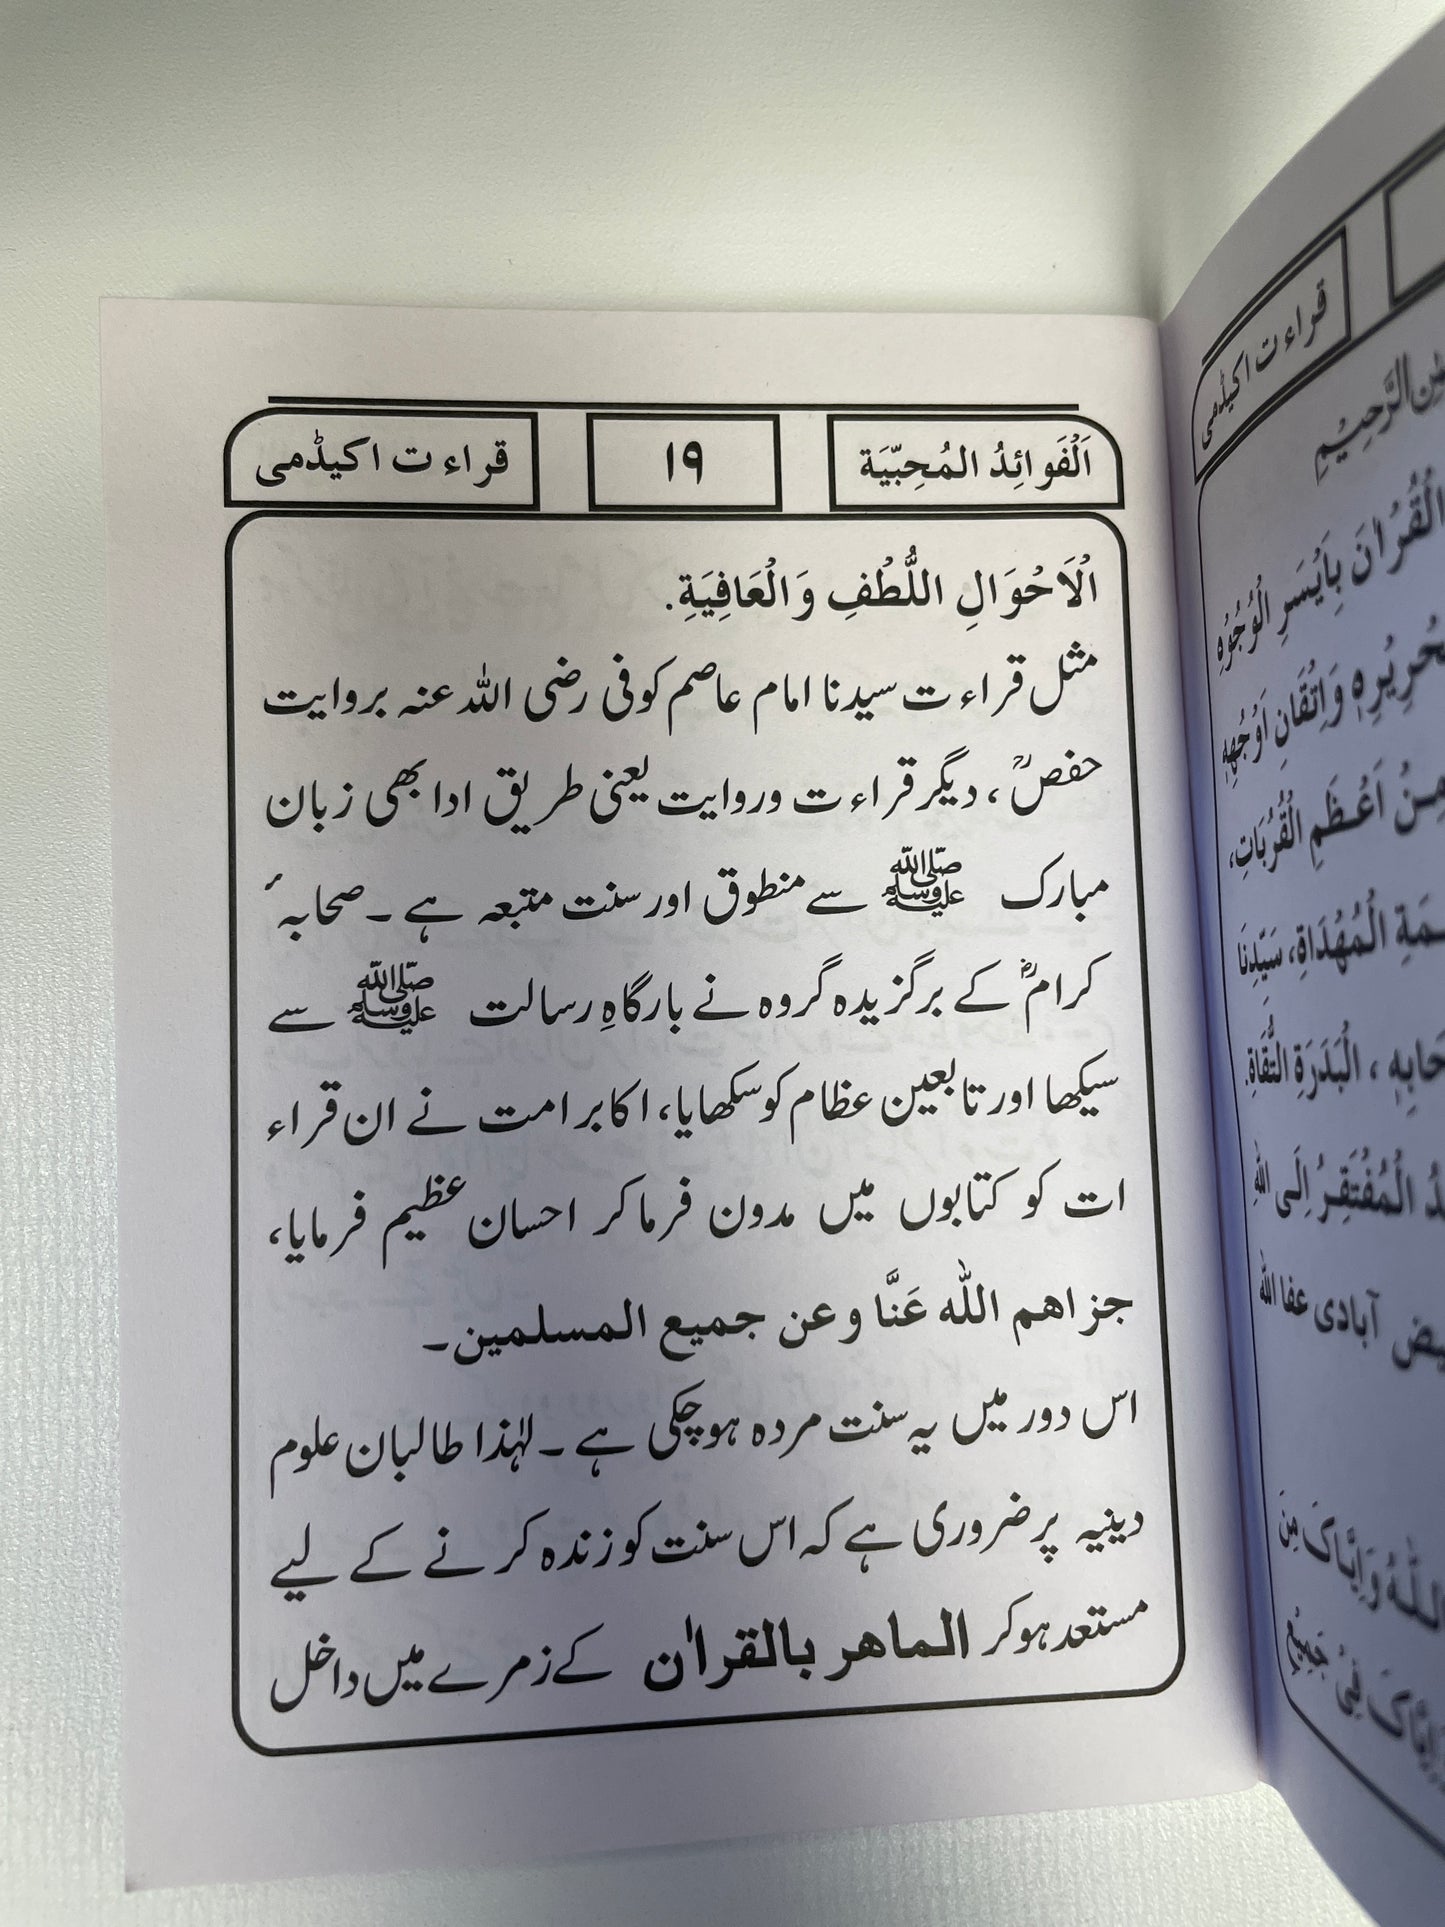 اَلْفَوَائِدُ الـمُحِبّيَة
١٩
قراءت اکیڈمی
الْاَحْوَالِ اللُّطْفِ وَالْعَافِيَةِ.
مثل قراءت سیدنا امام عاصم کوفی رضی اللہ عنہ بروایت
حفصؒ، دیگر قراءت وروایت یعنی طریق ادا بھی زبان
مبارک ﷺ سے منطوق اور سنت متبعہ ہے۔ صحابہٴ
کرامؓ کے برگزیدہ گروہ نے بارگاہِ رسالت ﷺ سے
سیکھا اور تابعین عظام کو سکھایا، اکابر امت نے ان قراء
ات کو کتابوں میں مدون فرما کر احسان عظیم فرمایا،
جزاهم اللّٰه عَنَّا وعن جميع المسلمين۔
اس دور میں یہ سنت مردہ ہوچکی ہے۔ لہٰذا طالبان علوم
دینیہ پر ضروری ہے کہ اس سنت کو زندہ کرنے کے لیے
مستعد ہوکر الماهر بالقراٰن کے زمرے میں داخل
قراءت اکیڈمی
الرَّحِيْمِ
الْقُرْاٰنَ بِاَيْسَرِ الْوُجُوْهِ
وَاِتْقَانِ اَوْجُهِهٖ
مِنْ اَعْظَمِ الْقُرُبَاتِ،
الْمُهْدَاةِ، سَيِّدِنَا
الْبَدَرَةِ التُّقَاةِ.
الْمُفْتَقِرُ اِلَى اللّٰهِ
آبادی عفا اللّٰه
وَاِيَّاكَ مِنَ
فِىْ جَمِيْعِ